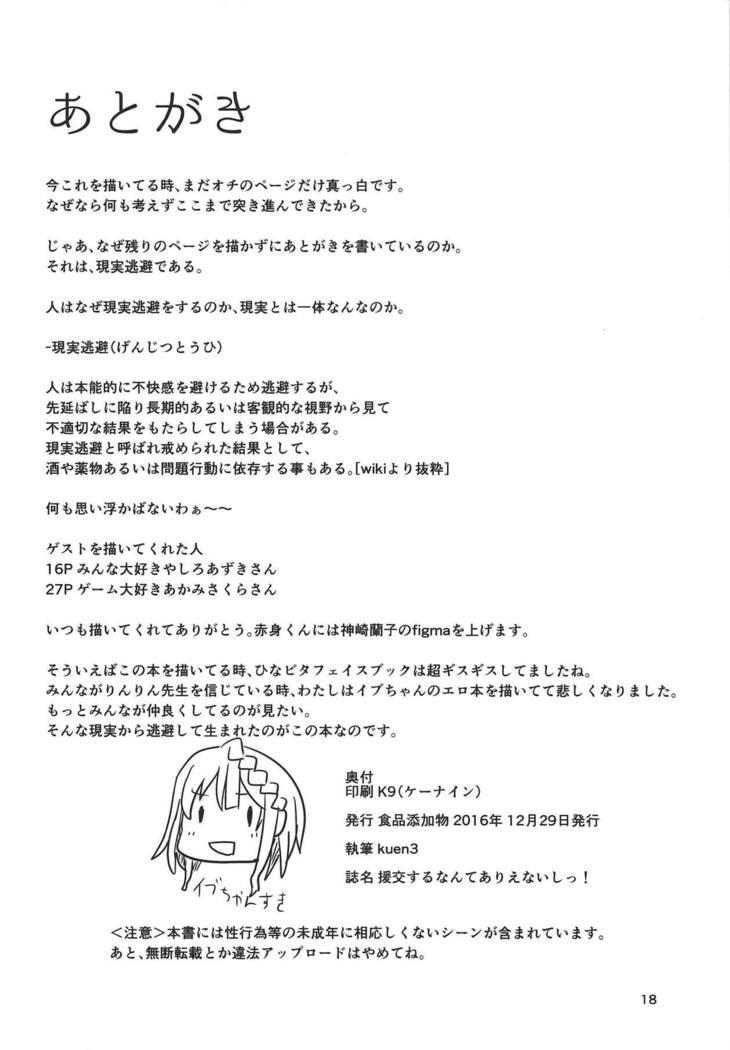 あとがき
今これを描いてる時、まだオチのページだけ真っ白です。
なぜなら何も考えずここまで突き進んできたから。
じゃあ、なぜ残りのページを描かずにあとがきを書いているのか。
それは、現実逃避である。
人はなぜ現実逃避をするのか、現実とは一体なんなのか。
-現実逃避（げんじつとうひ）
人は本能的に不快感を避けるため逃避するが、
先延ばしに陥り長期的あるいは客観的な視野から見て
不適切な結果をもたらしてしまう場合がある。
現実逃避と呼ばれ戒められた結果として、
酒や薬物あるいは問題行動に依存する事もある。［wikiより抜粋］
何も思い浮かばないわぁ〜〜
ゲストを描いてくれた人
16P みんな大好きやしろあずきさん
27P ゲーム大好きあかみさくらさん
いつも描いてくれてありがとう。赤身くんには神崎蘭子のfigmaを上げます。
そういえばこの本を描いてる時、ひなビタフェイスブックは超ギスギスしてましたね。
みんながりんりん先生を信じている時、わたしはイブちゃんのエロ本を描いてて悲しくなりました。
もっとみんなが仲良くしてるのが見たい。
そんな現実から逃避して生まれたのがこの本なのです。
イブちゃんすき
奥付
印刷 K9（ケーナイン）
発行 食品添加物 2016年 12月29日発行
執筆 kuen3
誌名 援交するなんてありえないしっ！
＜注意＞本書には性行為等の未成年に相応しくないシーンが含まれています。
あと、無断転載とか違法アップロードはやめてね。
18